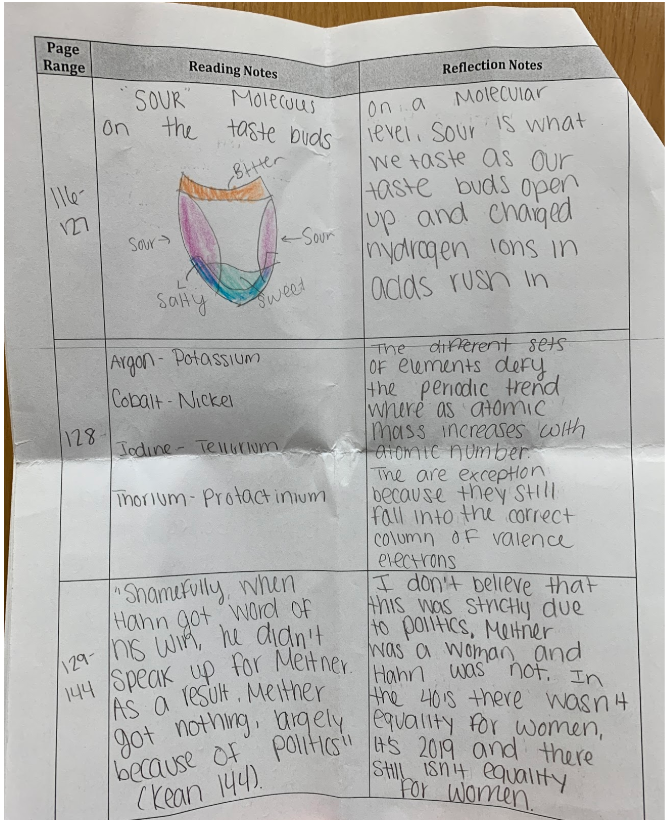 Page
Range
Reading Notes
Reflection Notes
116-
127
"SOUR" Molecules
on the taste buds
Bitter
Sour
Sour
Salty
Sweet
on a Molecular
level, Sour is what
we taste as our
taste buds open
up and charged
hydrogen ions in
acids rush in
128
Argon - Potassium
Cobalt - Nickel
Iodine - Tellurium
Thorium - Protactinium
The different sets
of elements defy
the periodic trend
where as atomic
mass increases with
atomic number.
The are exception
because they still
fall into the correct
column of valence
electrons
129-
144
"Shamefully, when
Hahn got word of
his win, he didn't
speak up for Meitner.
As a result, Meitner
got nothing, largely
because of politics"
(Kean 144).
I don't believe that
this was strictly due
to politics, Meitner
was a woman and
Hahn was not. In
the 40's there wasn't
equality for women,
it's 2019 and there
still isn't equality
for women.